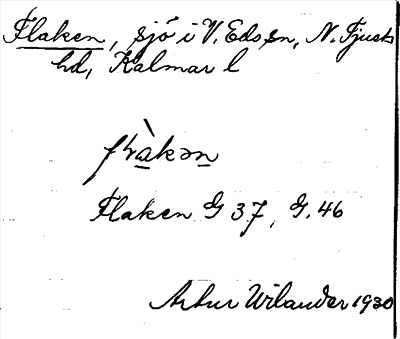 Flaken, sjö i V. Eds sn, N. Tjusts
hd, Kalmar l
Flaken G 37, G. 46
Artur Wilander 1930